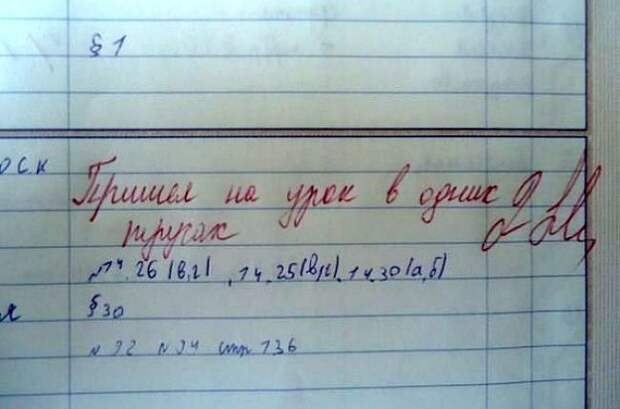 § 1
оск
Пришел на урок в одних
трусах
№14.26(в,г), 14.25(в,г), 14.30(а,б)
я
§30
№92 №94 стр 136